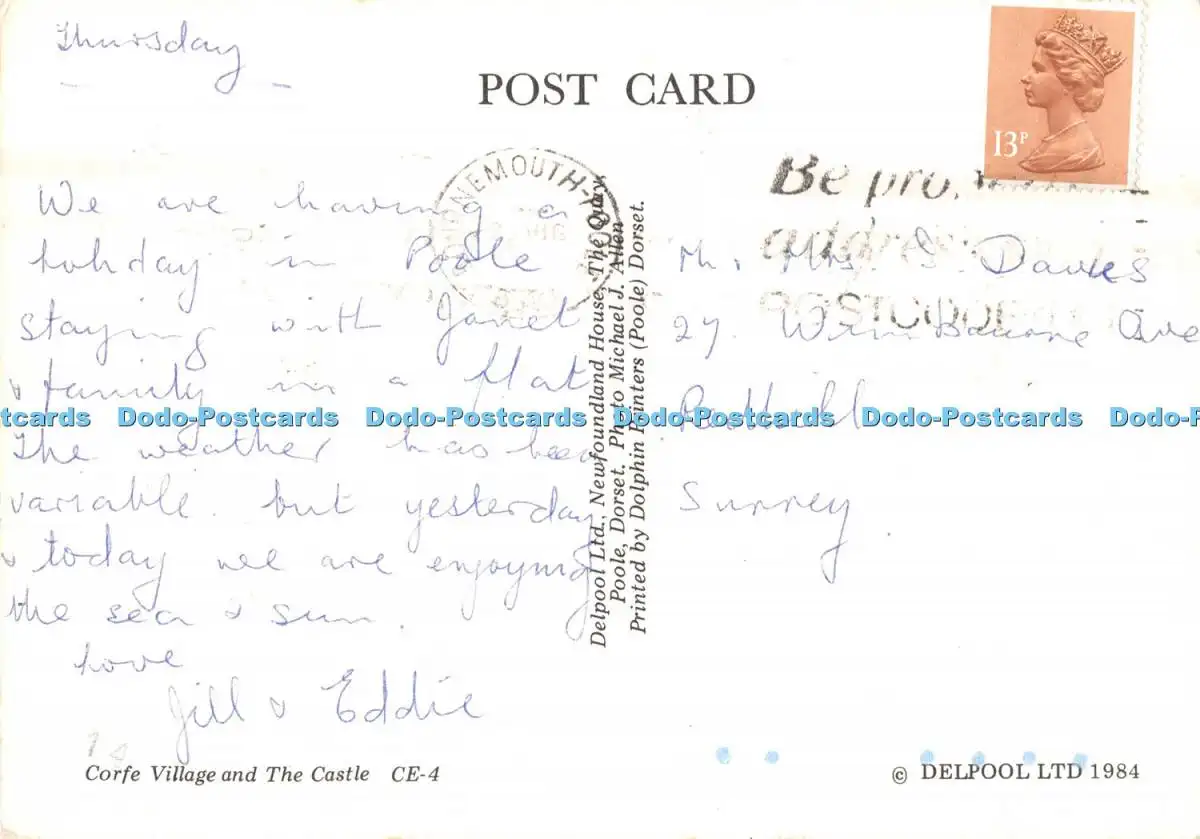 Thursday
POST CARD
13P
NEMOUTH-
Be
address
POSTCODE
We are having a
holiday in Poole
staying with Janet
& family in a flat
The weather has been
variable but yesterday
& today we are enjoying
the sea & sun.
Love
Jill & Eddie
Corfe Village and The Castle CE-4
Delpool Ltd., Newfoundland House, The Quay,
Poole, Dorset. Photo Michael J. Allen
Printed by Dolphin Printers (Poole) Dorset.
Mrs. Davies
27. Ave
Redhill
Surrey.
© DELPOOL LTD 1984
Dodo-Postcards Dodo-Postcards Dodo-Postcards Dodo-Postcards